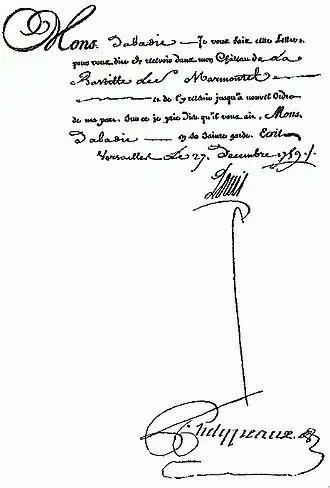 Mons. Dabadie Je vous fais cette Lettre,
pour vous dire de recevoir dans mon Château de La
Bastille le Sr Marmontel
et de l'y retenir jusqu'à nouvel Ordre
de ma part. Sur ce je prie Dieu qu'il vous ait, Mons.
Dabadie en sa sainte garde. Ecrit
Versailles Le 27. Decembre 1759./.
Louis
Phelypeaux